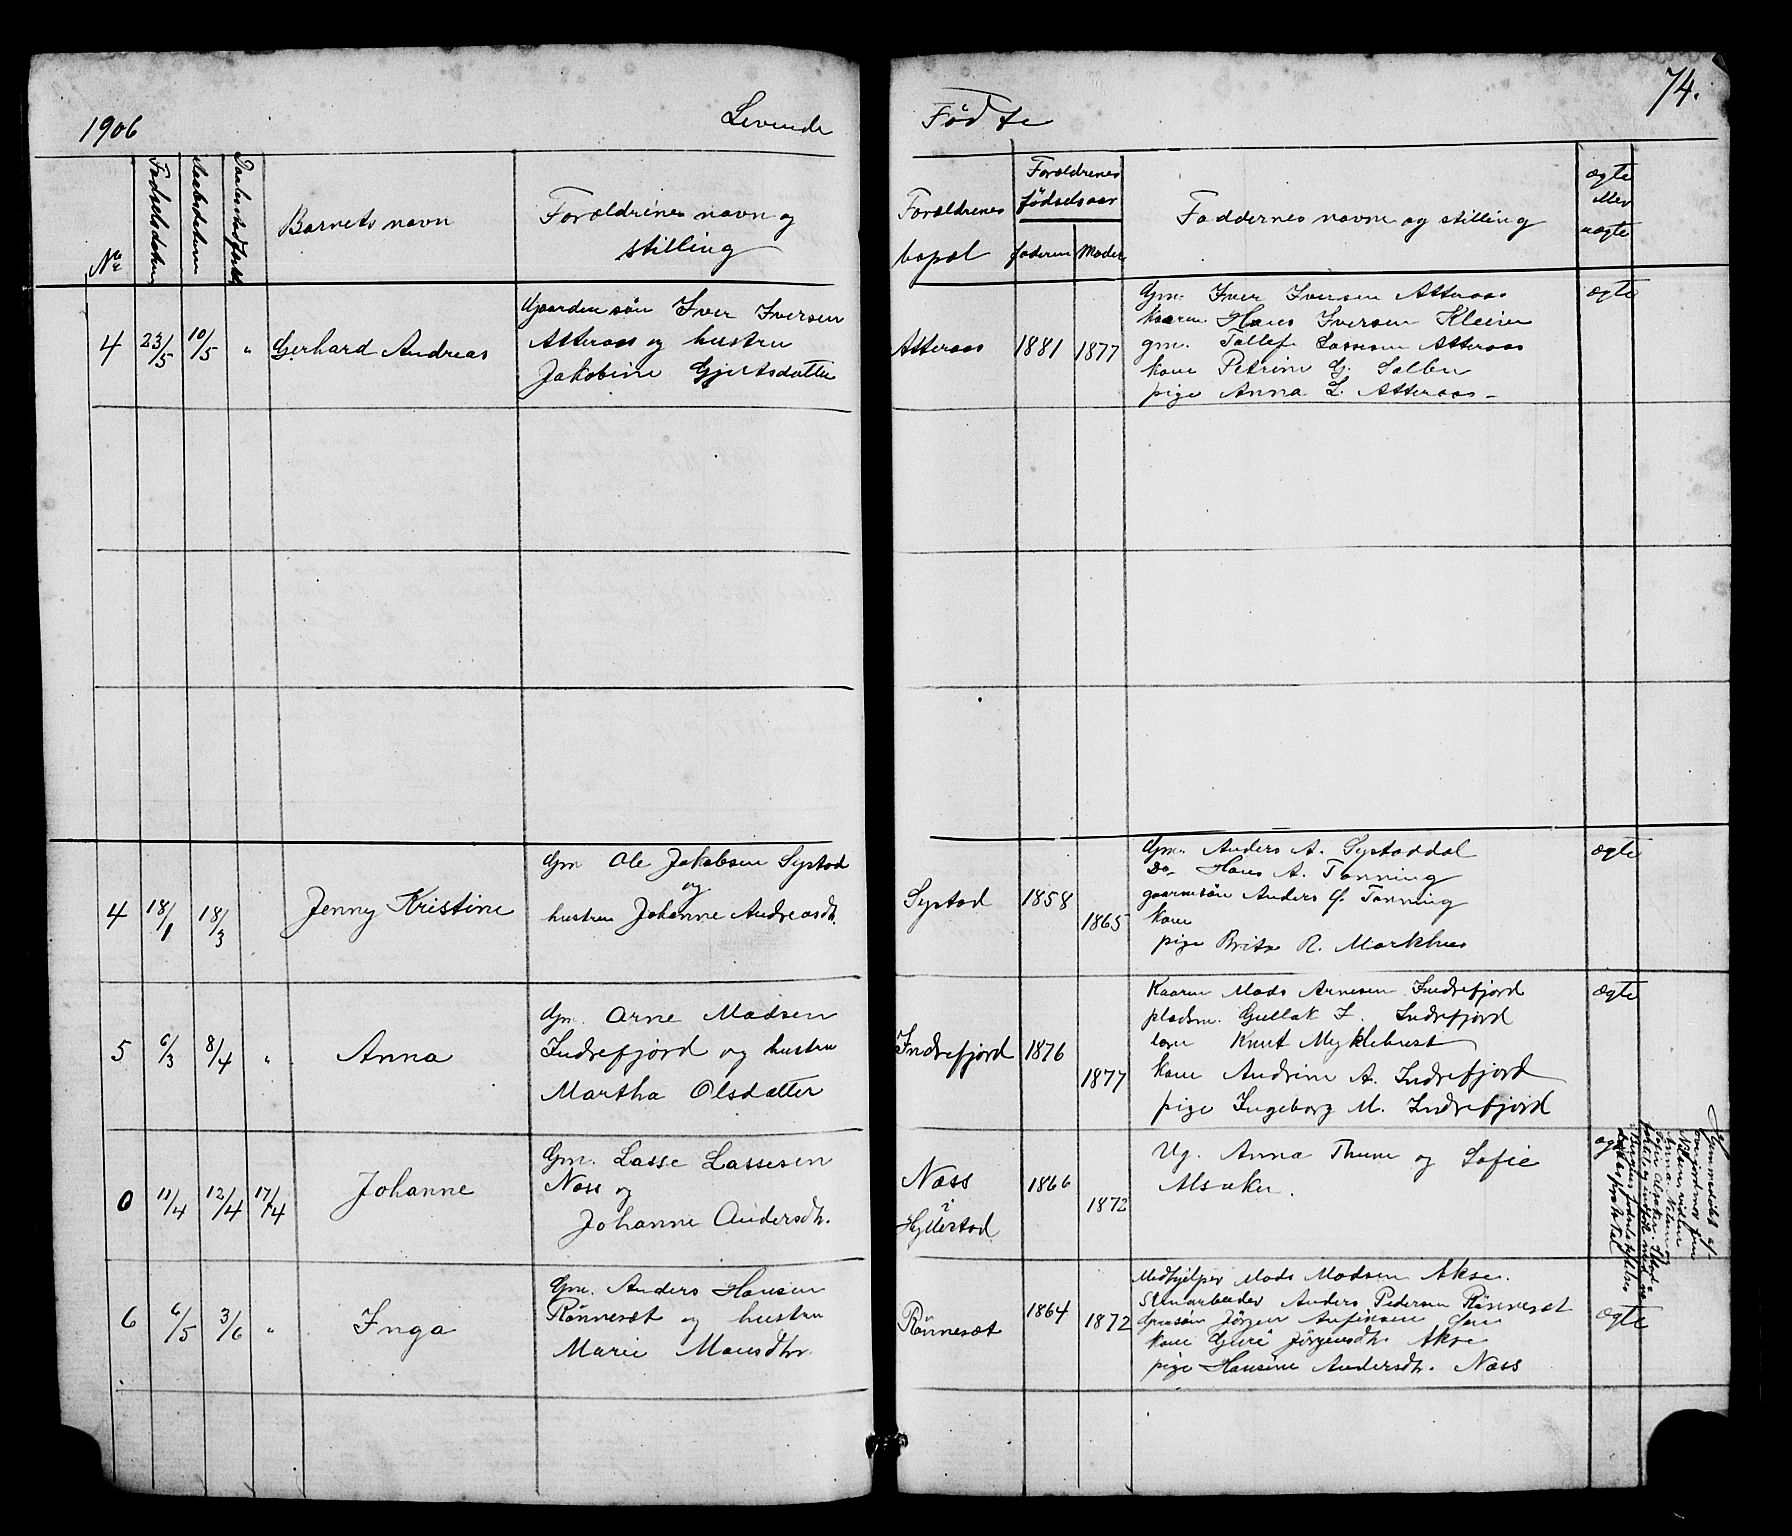 1906
Levende
Fødte
74.
No
Fødselsdatum
Daabsdatum
Barnets navn
Forældrenes navn og
stilling
Forældrenes
bopæl
Forældrenes
fødselsaar
faderen Moder
Faddernes navne og stilling
ægte
eller
uægte
4 23/5 10/5 " Gerhard Andreas
Gaardmsøn Iver Iversen
Atteraas og hustru
Jakobine Gjertsdatter
Atteraas 1881 1877
Gm. Iver Iversen Atteraas
kaarm Hans Iversen Kleiven
gm. Tollef Lassesen Atteraas
kone Petrine G. Solbu
pige Anna L. Atteraas
ægte
4 18/1 18/3 Jenny Kristine
Gm Ole Jakobsen Systad
og
hustru Johanne Andreasdt.
Systad 1858 1865
Gm. Anders A. Systaddal
Do Hans A. Tonning
gaarmsøn Anders G. Tonning
kone
pige Brita R. Markhus
ægte
5 6/3 8/4 " Anna
Gm. Arne Madsen
Indrefjord og hustru
Martha Olsdatter
Indrefjord 1876 1877
Kaarm Mads Arnesen Indrefjord
pladsm. Gullak I. Indrefjord
Knut Myklebust
kone Andrine A. Indrefjord
pige Ingeborg M. Indrefjord
ægte
0 11/4 12/4 17/4 Johanne
Gm. Lasse Lassesen
Næss og
Johanne Andersdt.
Næss
i
Hyllestad
1866 1872
Ug. Anna Thune og Sofie
Alsaker.
Hjemmedøbt af
jordmor
6 6/5 3/6 " Inga
Gm. Anders Hansen
Rønneset og hustru
Marie Monsdtr.
Rønneset 1864 1872
Medhjelper Mads Madsen Akse.
Stenarbeider Anders Pedersen Rønneset
Gmsøn Jørgen Anfinsen
kone Guri Jørgensdt. Akse
pige Hansine Andersdt. Næss
ægte